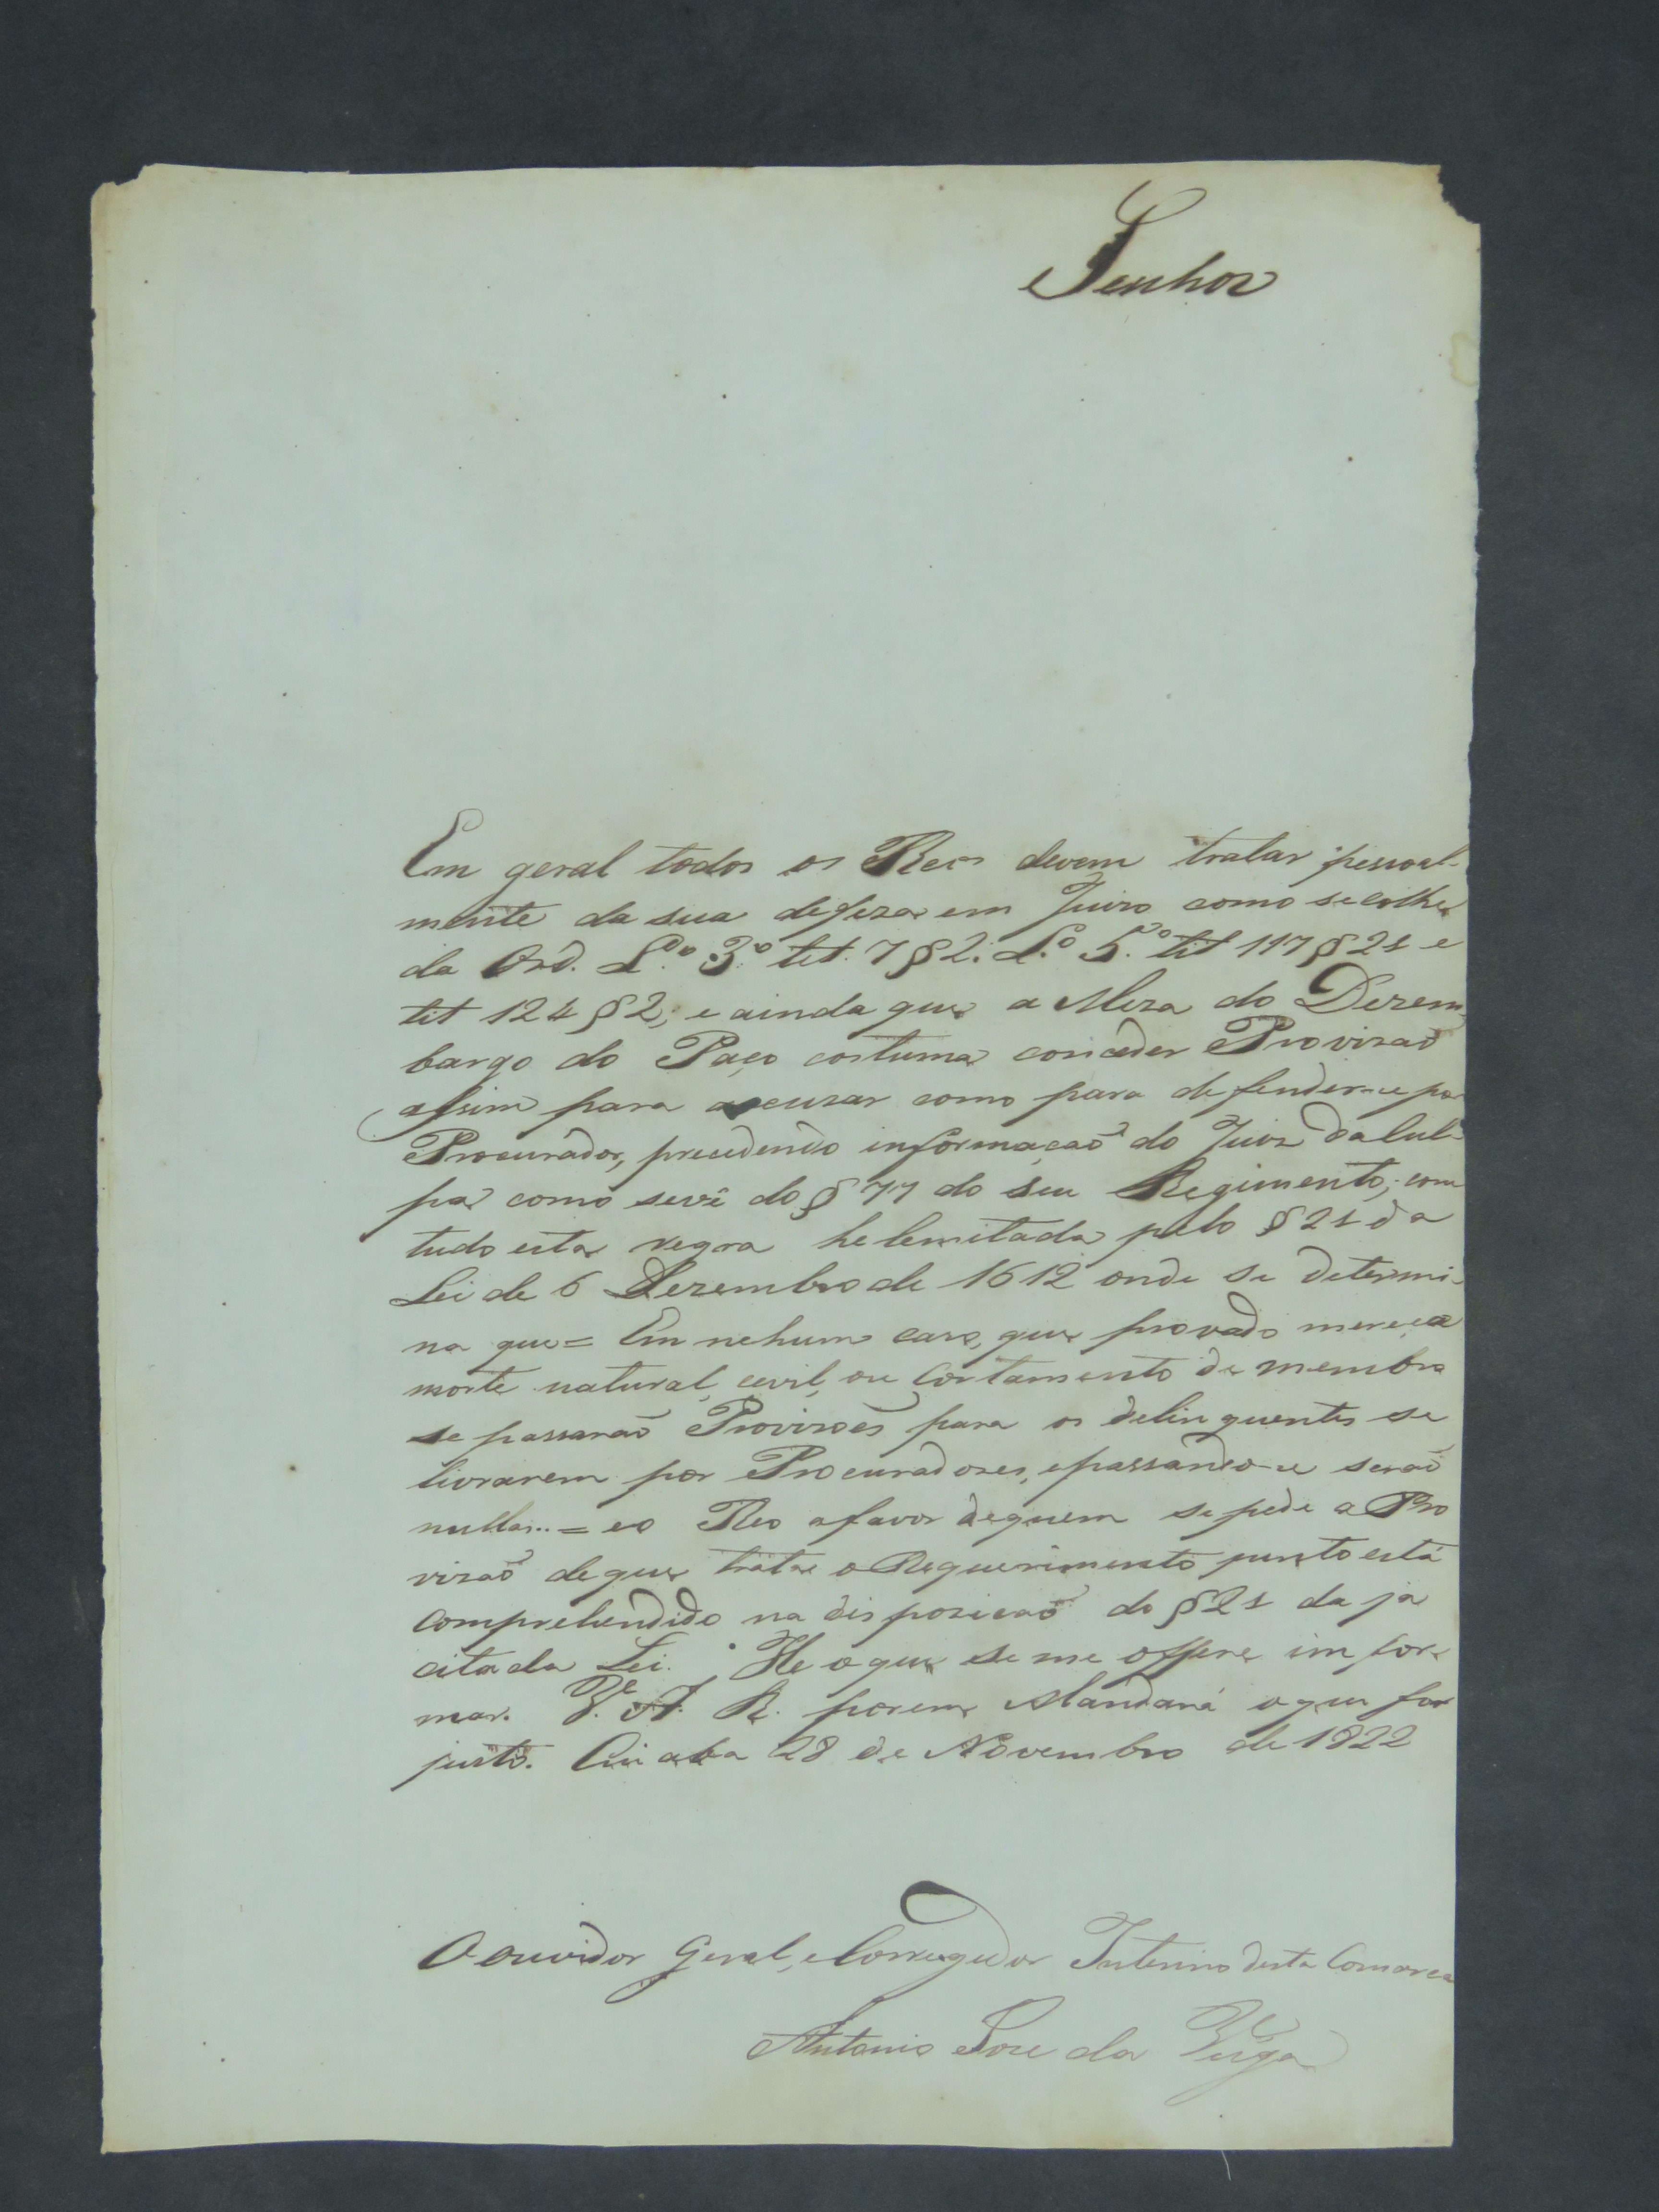 Senhor
Em geral todos os Reos devem tratar pessoal-
mente da sua defeza em Juizo como se colhe
da Ord. L.º 3.º tit. 7 § 2. L.º 5.º tit 117 § 21 e
tit 124 § 2; e ainda que a Meza do Dezem
bargo do Paço costuma conceder Provizaõ
assim para accuzar como para defender-se por
Procurador, precedendo informaçaõ do Juiz da Cul-
pa como se vê do § 77 do seu Regimento; com
tudo esta regra he lemitada pelo § 21 da
Lei de 6 Dezembro de 1612 onde se determi-
na que = Em nehum cazo, que provado mereça
morte natural, cevil, ou Cortamento de membro
se passaraõ Provizoẽs para os delinquentes se
livrarem por Procuradores, e passando-se seraõ
nullas.. = e o Reo a favor de quem se pede a Pro
vizaõ de que trata o Requerimento junto está
comprehendido na dispozicaõ do § 21 da já
citada Lei. He o que se me offere imfor-
mar. V. A. R. porem Mandará o que for
justo. Cuiaba 28 de Novembro de 1822
O ouvidor Geral, e Corregedor Interino desta Comarca
Antonio Joze da Veiga